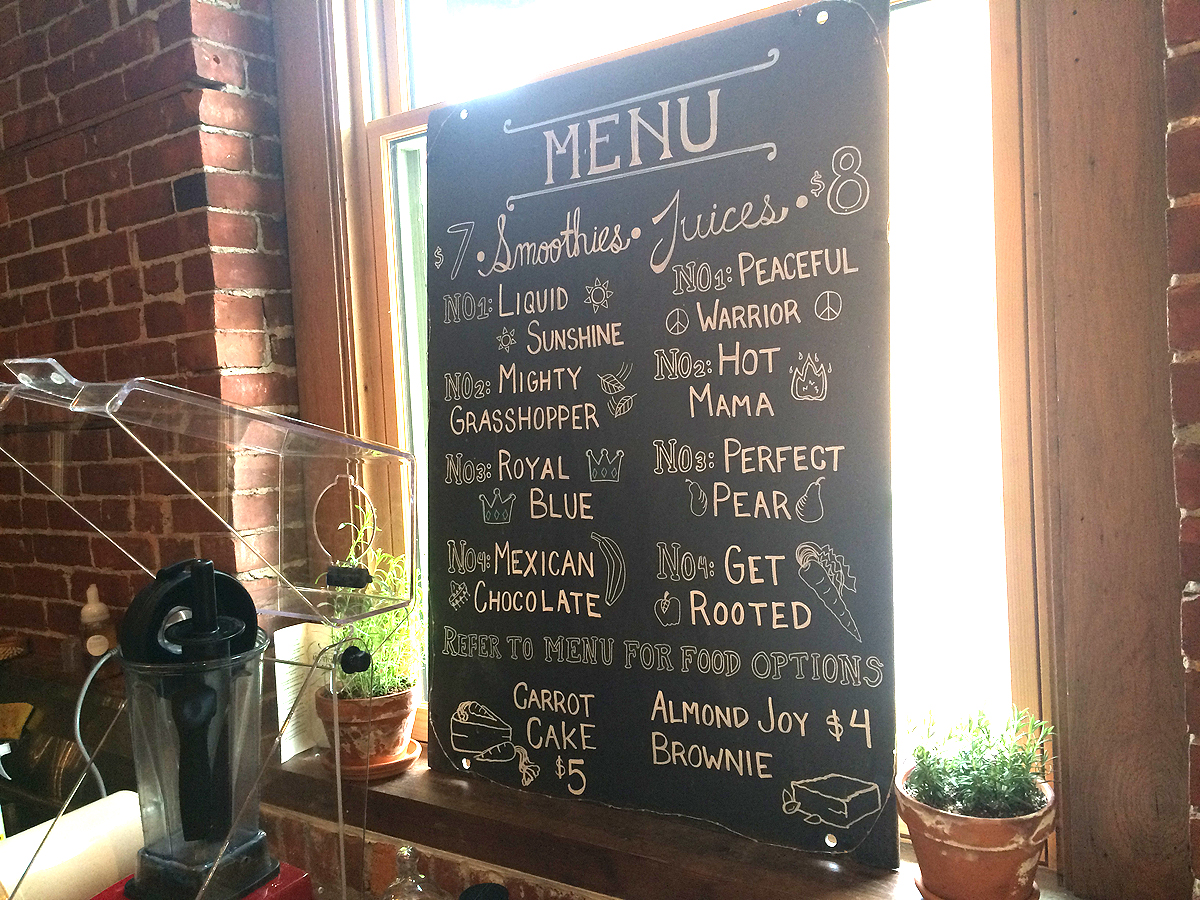 MENU
$7 • Smoothies • Juices • $8
NO1: LIQUID
SUNSHINE
NO2: MIGHTY
GRASSHOPPER
NO3: ROYAL
BLUE
NO4: MEXICAN
CHOCOLATE
NO1: PEACEFUL
WARRIOR
NO2: HOT
MAMA
NO3: PERFECT
PEAR
NO4: GET
ROOTED
REFER TO MENU FOR FOOD OPTIONS
CARROT
CAKE
$5
ALMOND JOY $4
BROWNIE